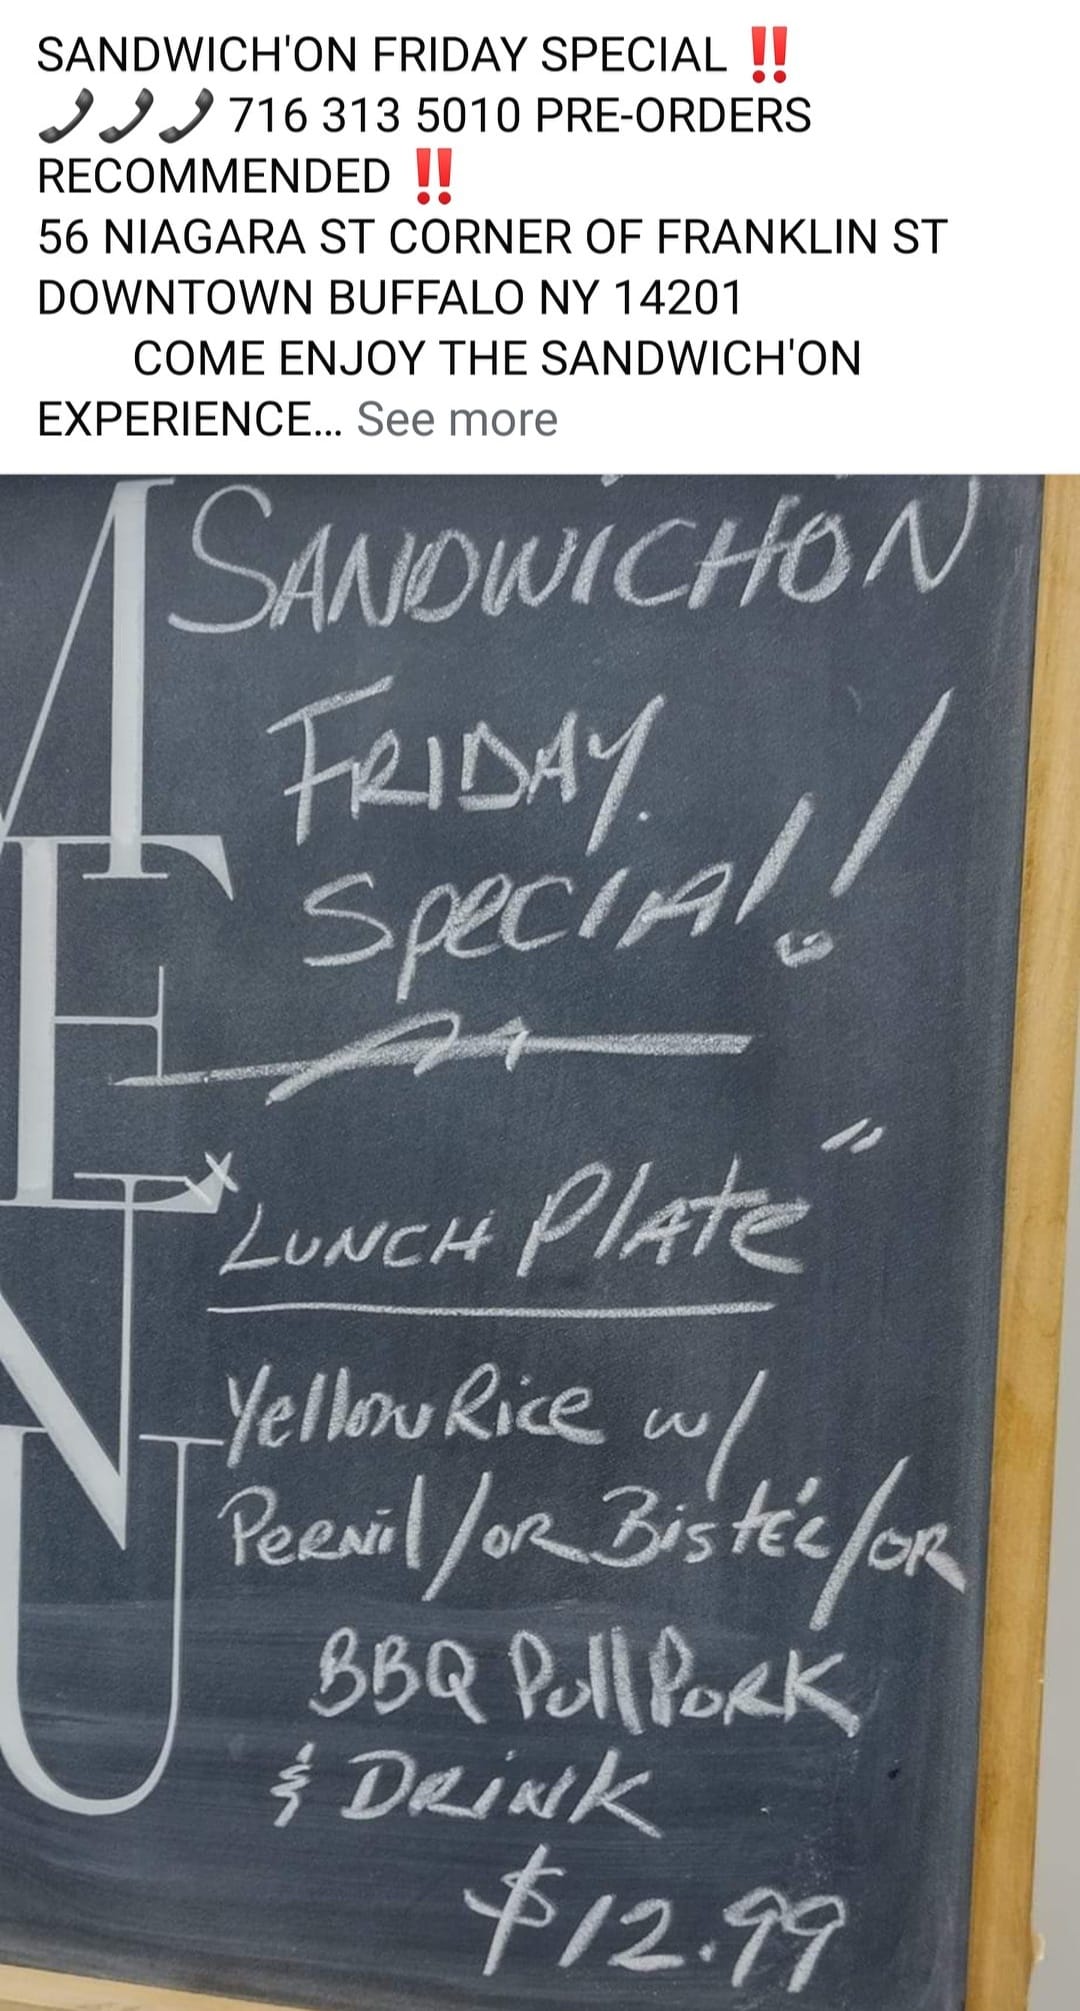 SANDWICH'ON FRIDAY SPECIAL ‼️
📞📞📞 716 313 5010 PRE-ORDERS
RECOMMENDED ‼️
56 NIAGARA ST CORNER OF FRANKLIN ST
DOWNTOWN BUFFALO NY 14201
COME ENJOY THE SANDWICH'ON
EXPERIENCE... See more
MENU
SANDWICH'ON
FRIDAY.
Special!!
"LUNCH Plate"
Yellow Rice w/
Pernil/or Bistéc/or
BBQ Pull Pork
& Drink
$12.99